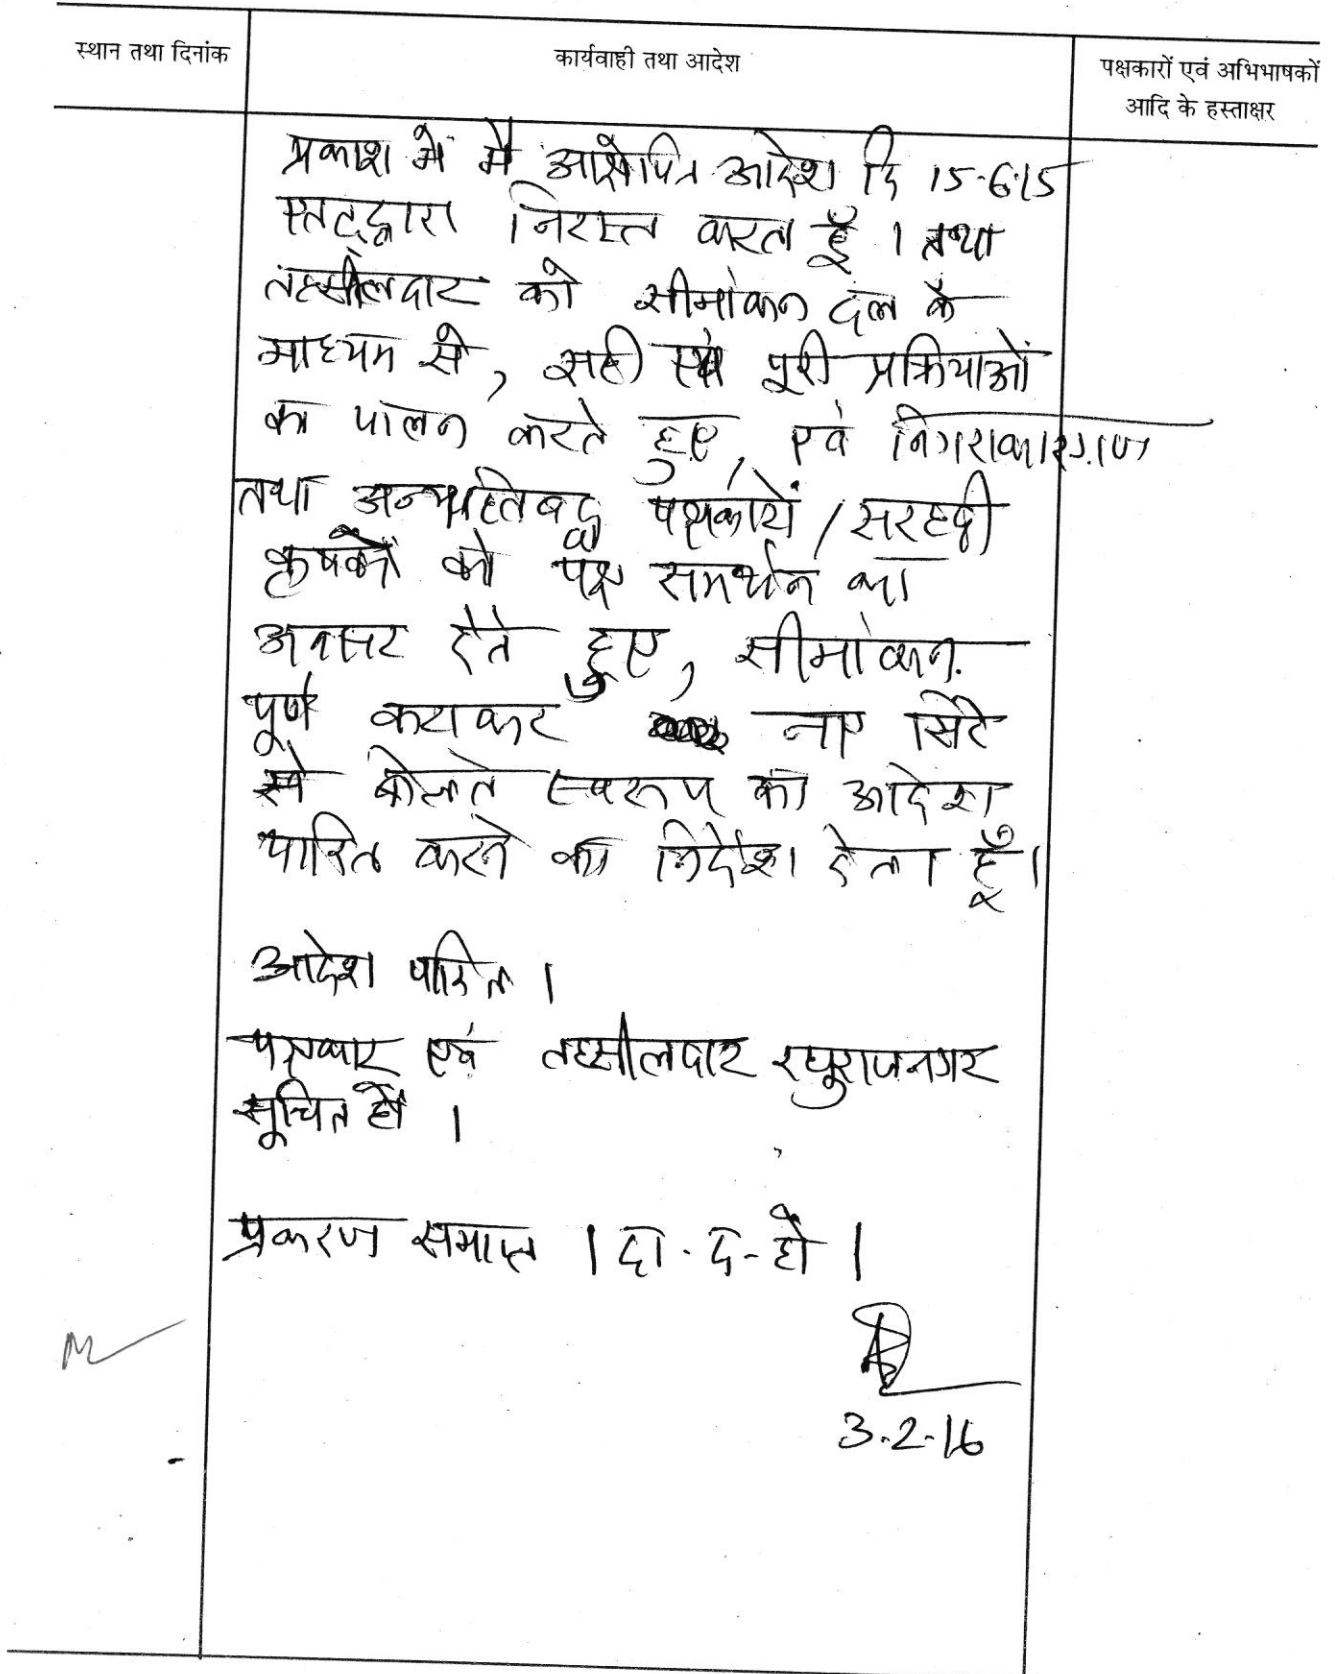 स्थान तथा दिनांक
कार्यवाही तथा आदेश
पक्षकारों एवं अभिभाषकों
आदि के हस्ताक्षर
प्रकाश में मैं आक्षेपित आदेश दि 15-6-15
एतद्द्वारा निरस्त करता हूँ । तथा
तहसीलदार को सीमांकन दल के
माध्यम से, सही एवं पूरी प्रक्रियाओं
का पालन करते हुए, एवं निगराकारगण
तथा हितबद्ध पक्षकारों / सरहदी
कृषकों को पक्ष समर्थन का
अवसर देते हुए, सीमांकन
पूर्ण कराकर नए सिरे
से बोलते स्वरूप का आदेश
पारित करने का निर्देश देता हूँ।
आदेश पारित ।
पक्षकार एवं तहसीलदार रघुराजनगर
सूचित हों ।
प्रकरण समाप्त । दा. द- हो ।
3-2-16